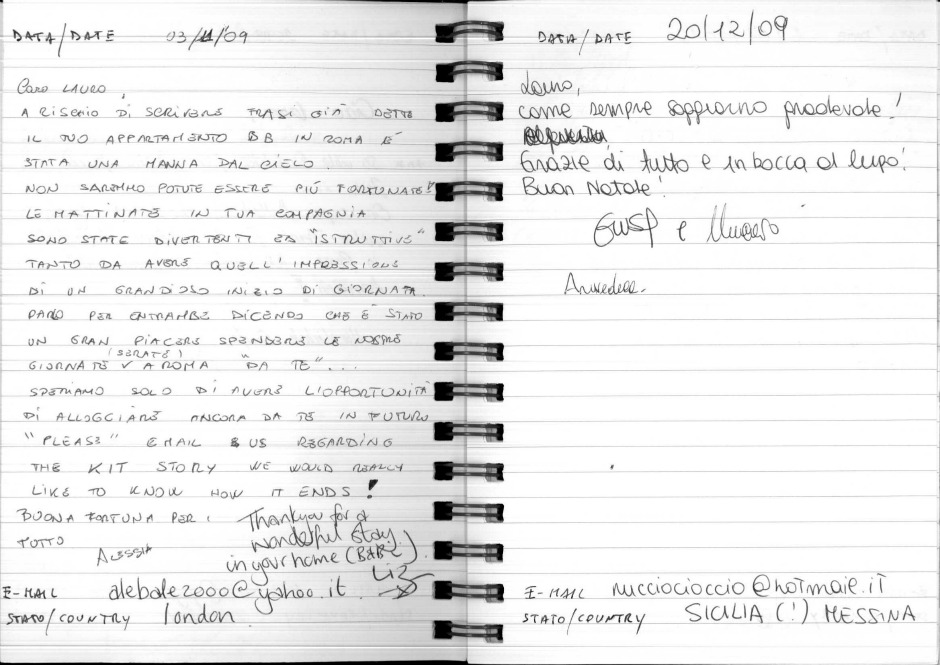 DATA/DATE 03/11/09
Caro LAURO,
A RISCHIO DI SCRIVERE FRASI GIÀ DETTE
IL TUO APPARTAMENTO BB IN ROMA É
STATA UNA MANNA DAL CIELO.
NON SAREMMO POTUTE ESSERE PIÚ FORTUNATE!!
LE MATTINATE IN TUA COMPAGNIA
SONO STATE DIVERTENTI ED "ISTRUTTIVE"
TANTO DA AVERE QUELL'IMPRESSIONE
DI UN GRANDIOSO INIZIO DI GIORNATA.
PARLO PER ENTRAMBE DICENDO CHE É STATO
UN GRAN PIACERE SPENDERE LE NOSTRE
(SERATE)
GIORNATE V A ROMA "DA TE"...
SPERIAMO SOLO DI AVERE L'OPPORTUNITÀ
DI ALLOGGIARE ANCORA DA TE IN FUTURO
"PLEASE" EMAIL US REGARDING
THE KIT STORY WE WOULD REALLY
LIKE TO KNOW HOW IT ENDS!
BUONA FORTUNA PER
TUTTO
ALESSIA
Thankyou for a
wonderful stay
in your home (B&B).
Liz
E-MAIL alebale2000@yahoo.it
STATO/COUNTRY london
DATA/DATE 20/12/09
Lauro,
come sempre soggiorno gradevole!
Grazie di tutto e in bocca al lupo!
Buon Natale!
Giusy e
E-MAIL nucciocioccio@hotmail.it
STATO/COUNTRY SICILIA (!) MESSINA